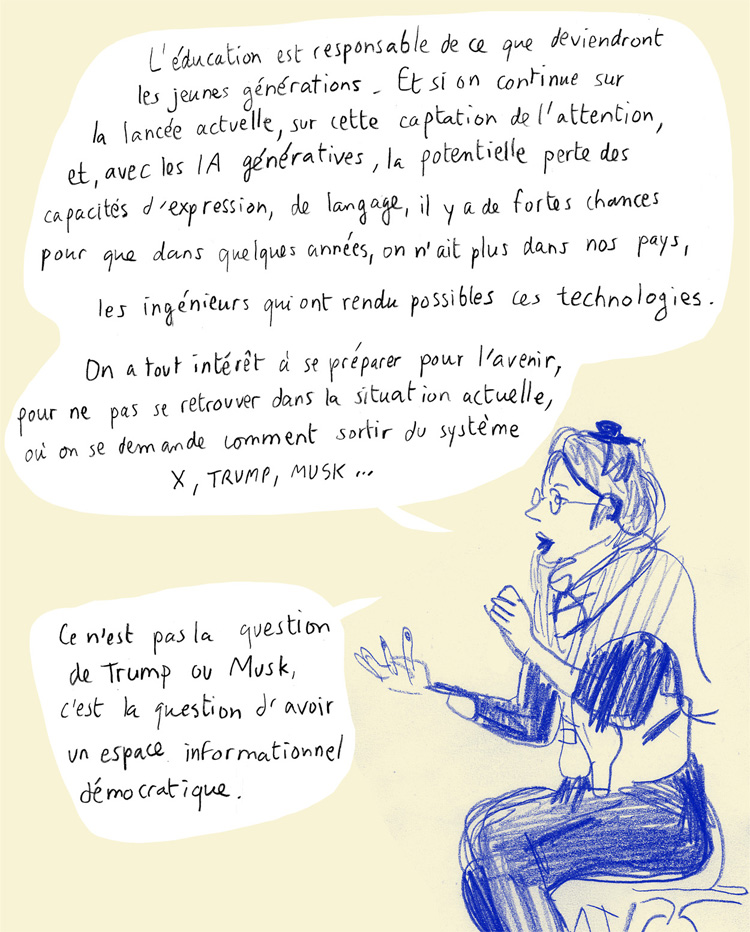 L'éducation est responsable de ce que deviendront
les jeunes générations_ Et si on continue sur
la lancée actuelle, sur cette captation de l'attention,
et, avec les IA génératives, la potentielle perte des
capacités d'expression, de langage, il y a de fortes chances
pour que dans quelques années, on n'ait plus dans nos pays,
les ingénieurs qui ont rendu possibles ces technologies.
On a tout intérêt à se préparer pour l'avenir,
pour ne pas se retrouver dans la situation actuelle,
où on se demande comment sortir du système
X, TRUMP, MUSK...
Ce n'est pas la question
de Trump ou Musk,
c'est la question d'avoir
un espace informationnel
démocratique.